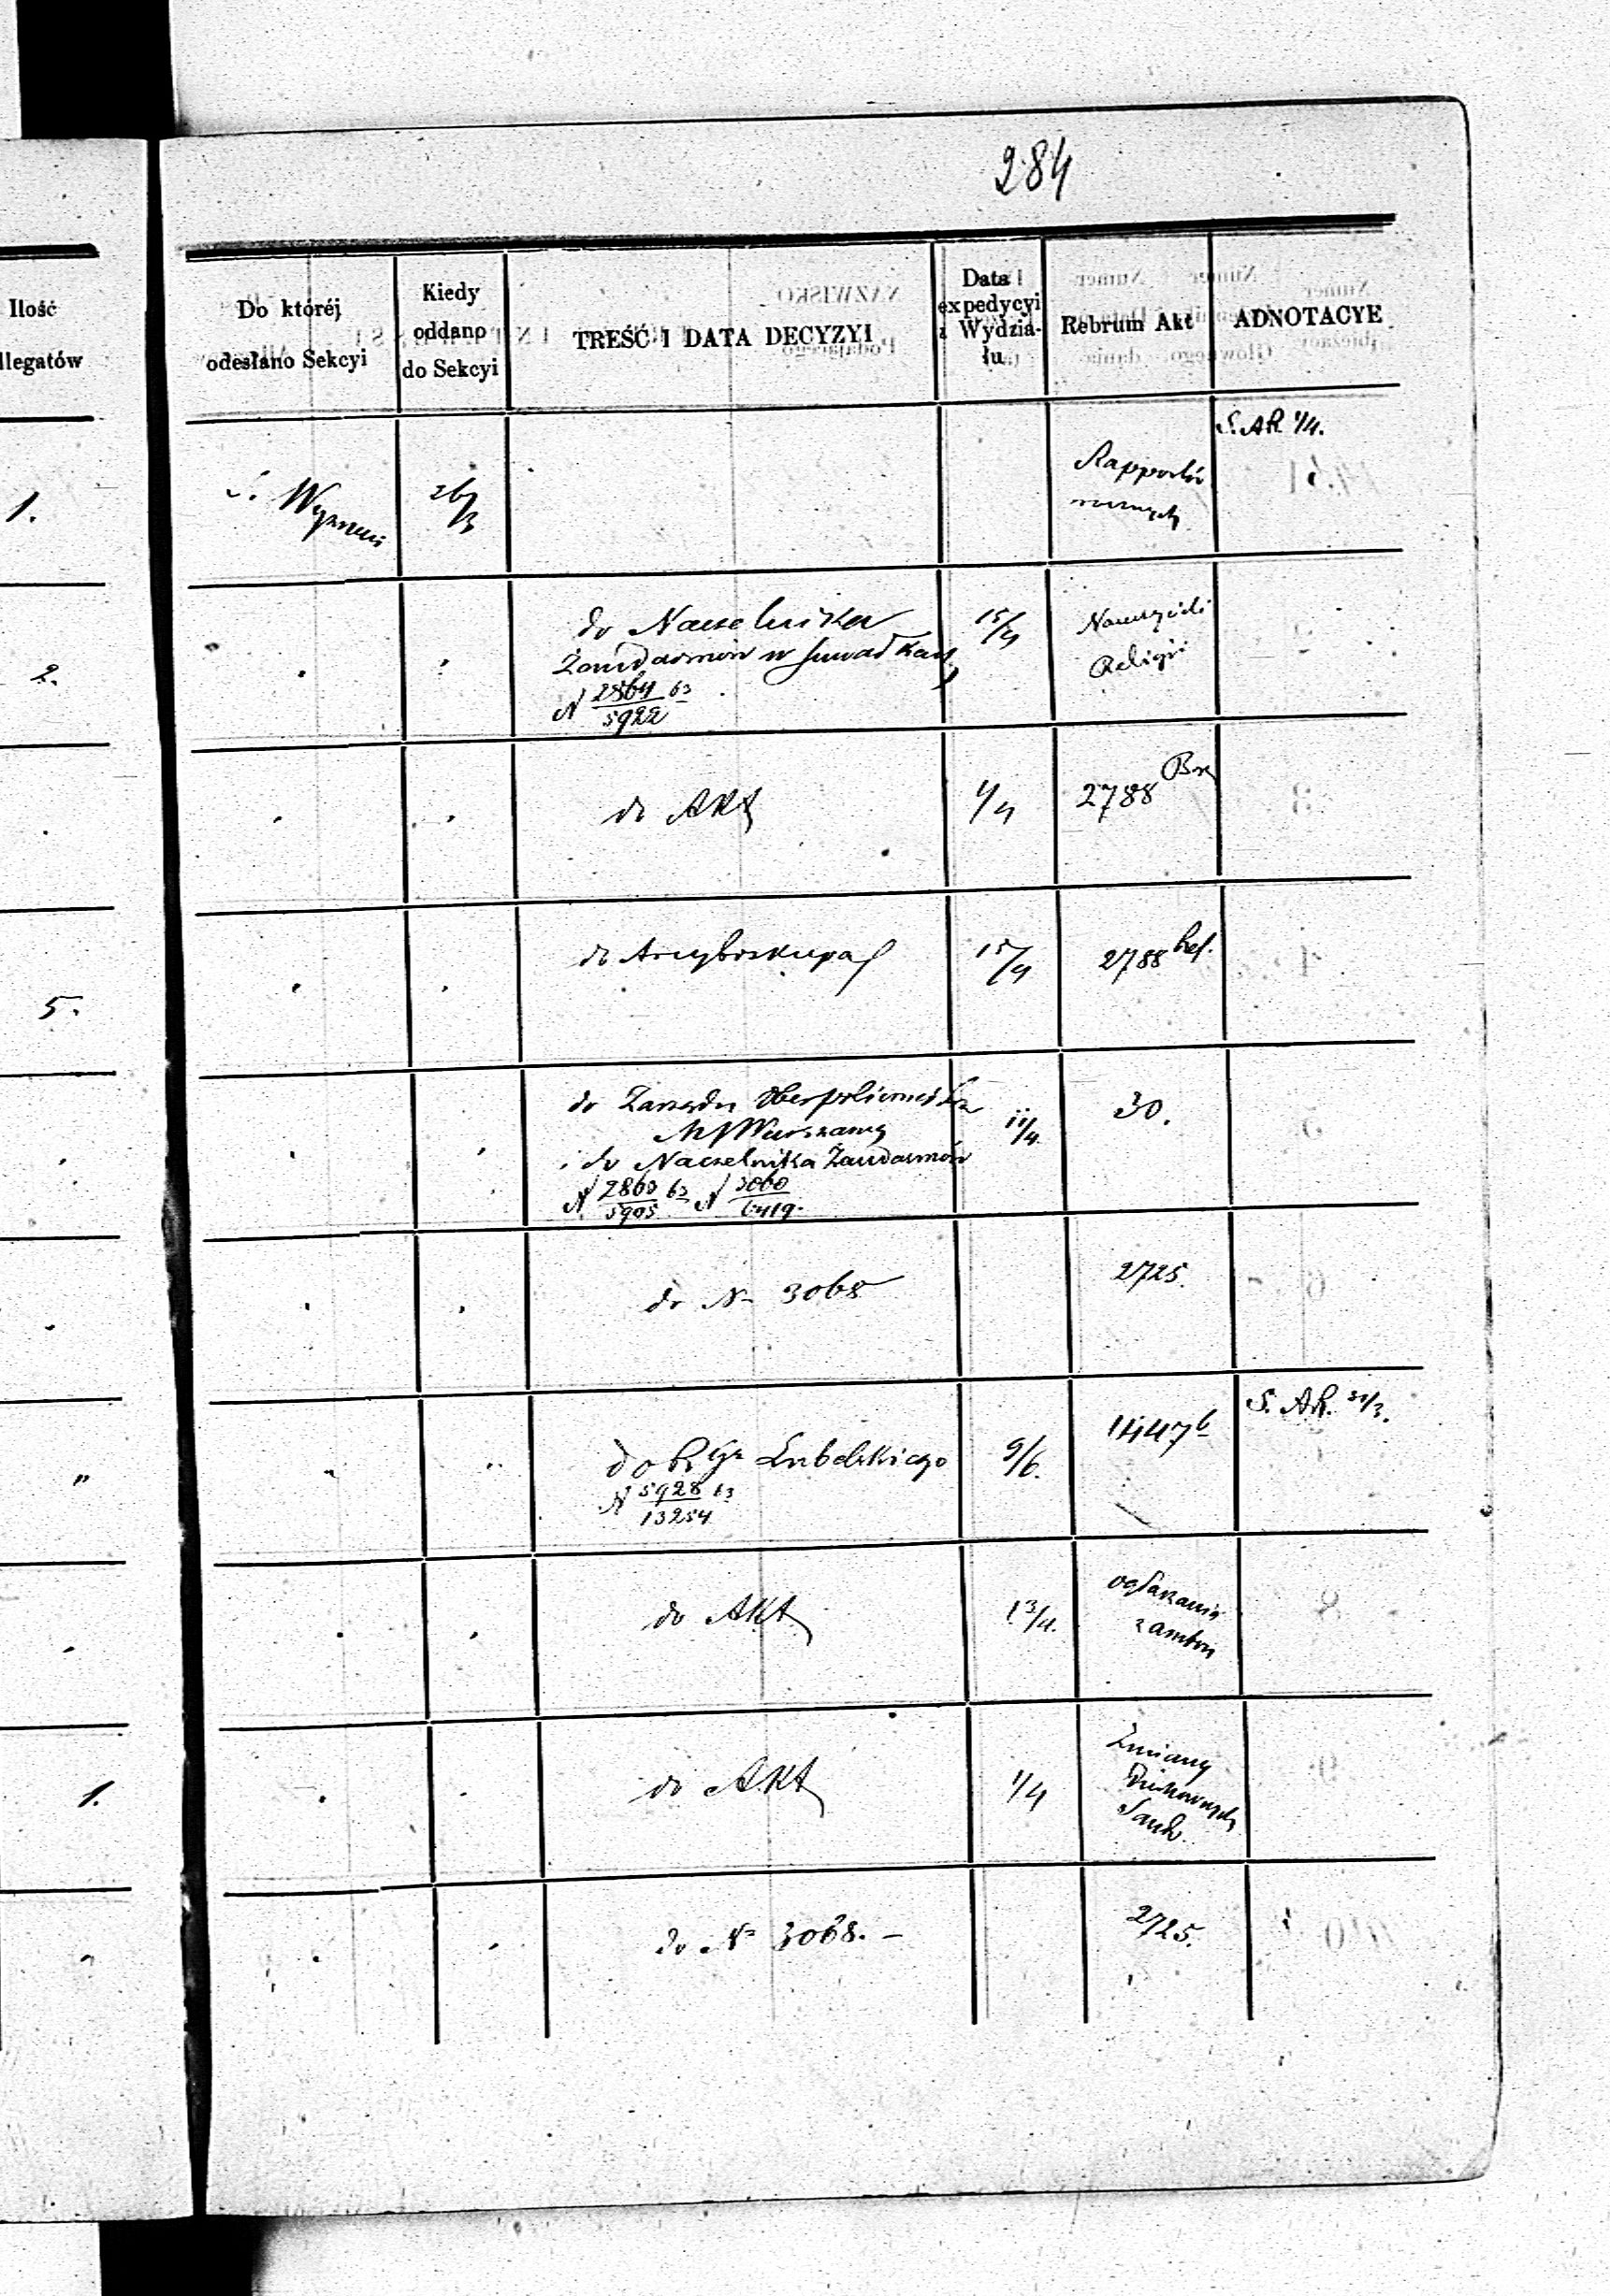 284
Ilość
llegatów
Do któréj
odesłano Sekcyi
Kiedy
oddano
do Sekcyi
TREŚĆ I DATA DECYZYI
Data
expedycyi
z Wydzia-
łu
Rebrum Akt
ADNOTACYE
1.
S. Wyznań
26/3
Rapportów
S. AR. 1/4.
2.
do Naczelnika
Żandarmów w Suwałkach
N 2864/5922 63
15/4
Nauczycieli
Religii
do Akt
1/4
2788
5.
do Arcybiskupa
15/4
2788
do Zarządu Oberpolicmejstra
M. Warszawy
i do Naczelnika Żandarmów
N 2860/5905 63 N 3060/6419.
11/4.
30.
do N 3068
2725.
"
do Gr Lubelskiego
N 5928/13254 63
9/6.
1447 b
S. AR. 31/3.
do Akt
13/4.
ogłaszania
z ambon
1.
do Akt
1/4
Zmiany
Duchownych
Sand.
do N 3068. -
2725.